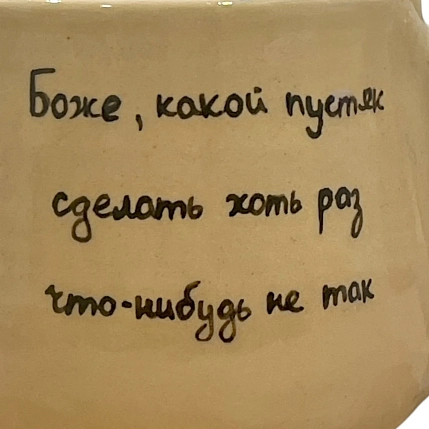 Боже, какой пустяк
сделать хоть раз
что-нибудь не так